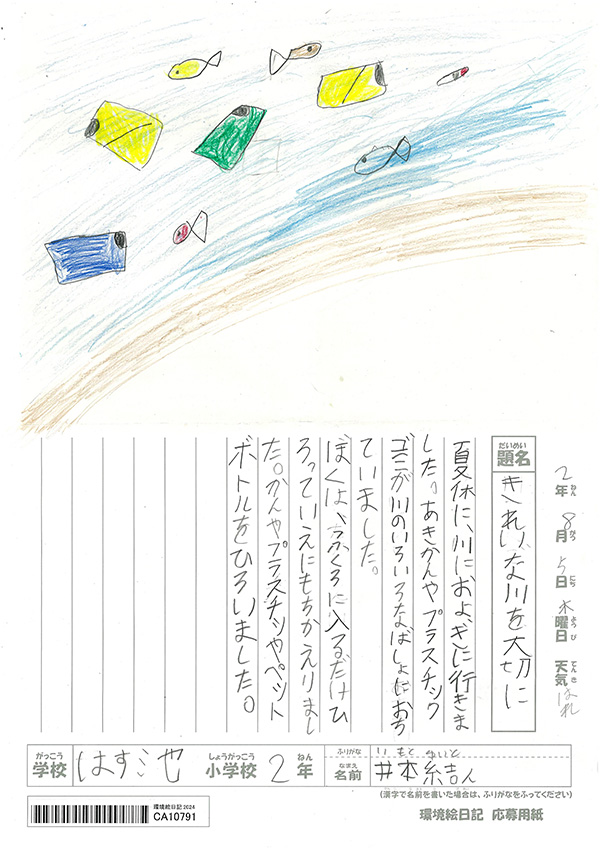 2年 8月 5日 木曜日 天気 はれ
ねん がつ にち ようび てんき
だいめい
題名
きれいな川を大切に
夏休に、川におよぎに行きま
した。あきかんやプラスチック
ゴミが川のいろいろなばしょにおち
ていました。
ぼくは、ふくろに入るだけひ
ろっていえにもちかえりまし
た。かんやプラスチックやペット
ボトルをひろいました。
がっこう
学校
しょうがっこう
小学校 2年
ねん
ふりがな
なまえ
名前 井本
(漢字で名前を書いた場合は、ふりがなをふってください)
環境絵日記2024
CA10791
環境絵日記 応募用紙